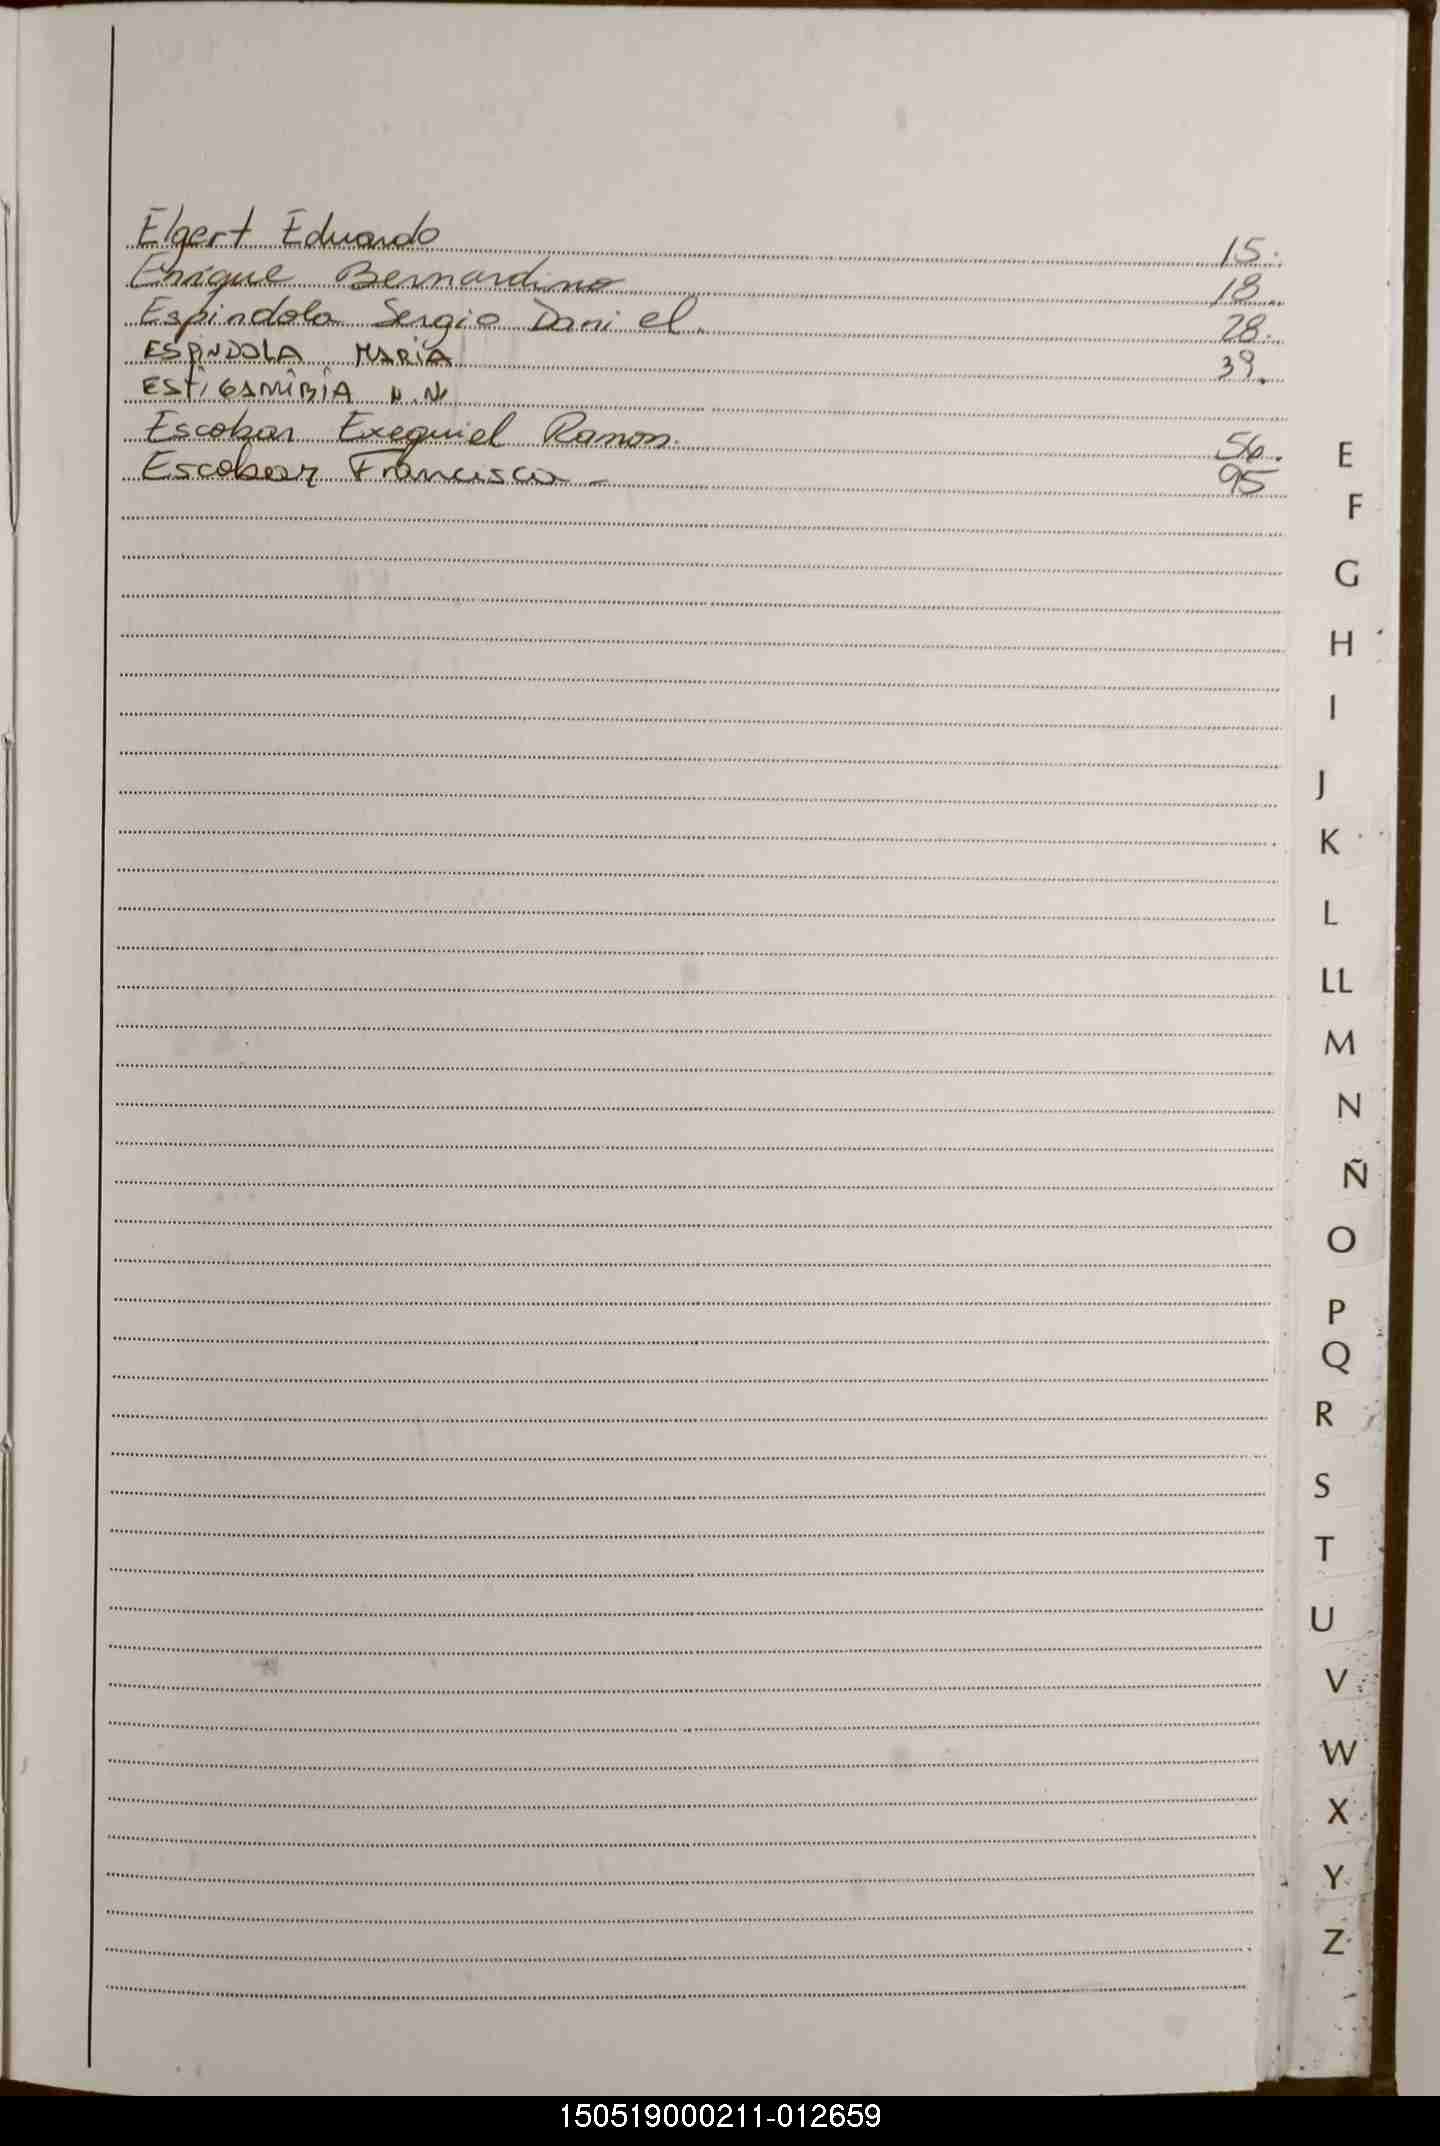 Elgert Eduardo 15.
Enrique Bernardino 18
Espindola Sergio Daniel. 28.
ESPINDOLA MARIA 39.
ESTIGAMIBIA N.N
Escobar Exequiel Ramon. 56.
Escobar Francisca - 95
E
F
G
H
I
J
K
L
LL
M
N
Ñ
O
P
Q
R
S
T
U
V
W
X
Y
Z
150519000211-012659